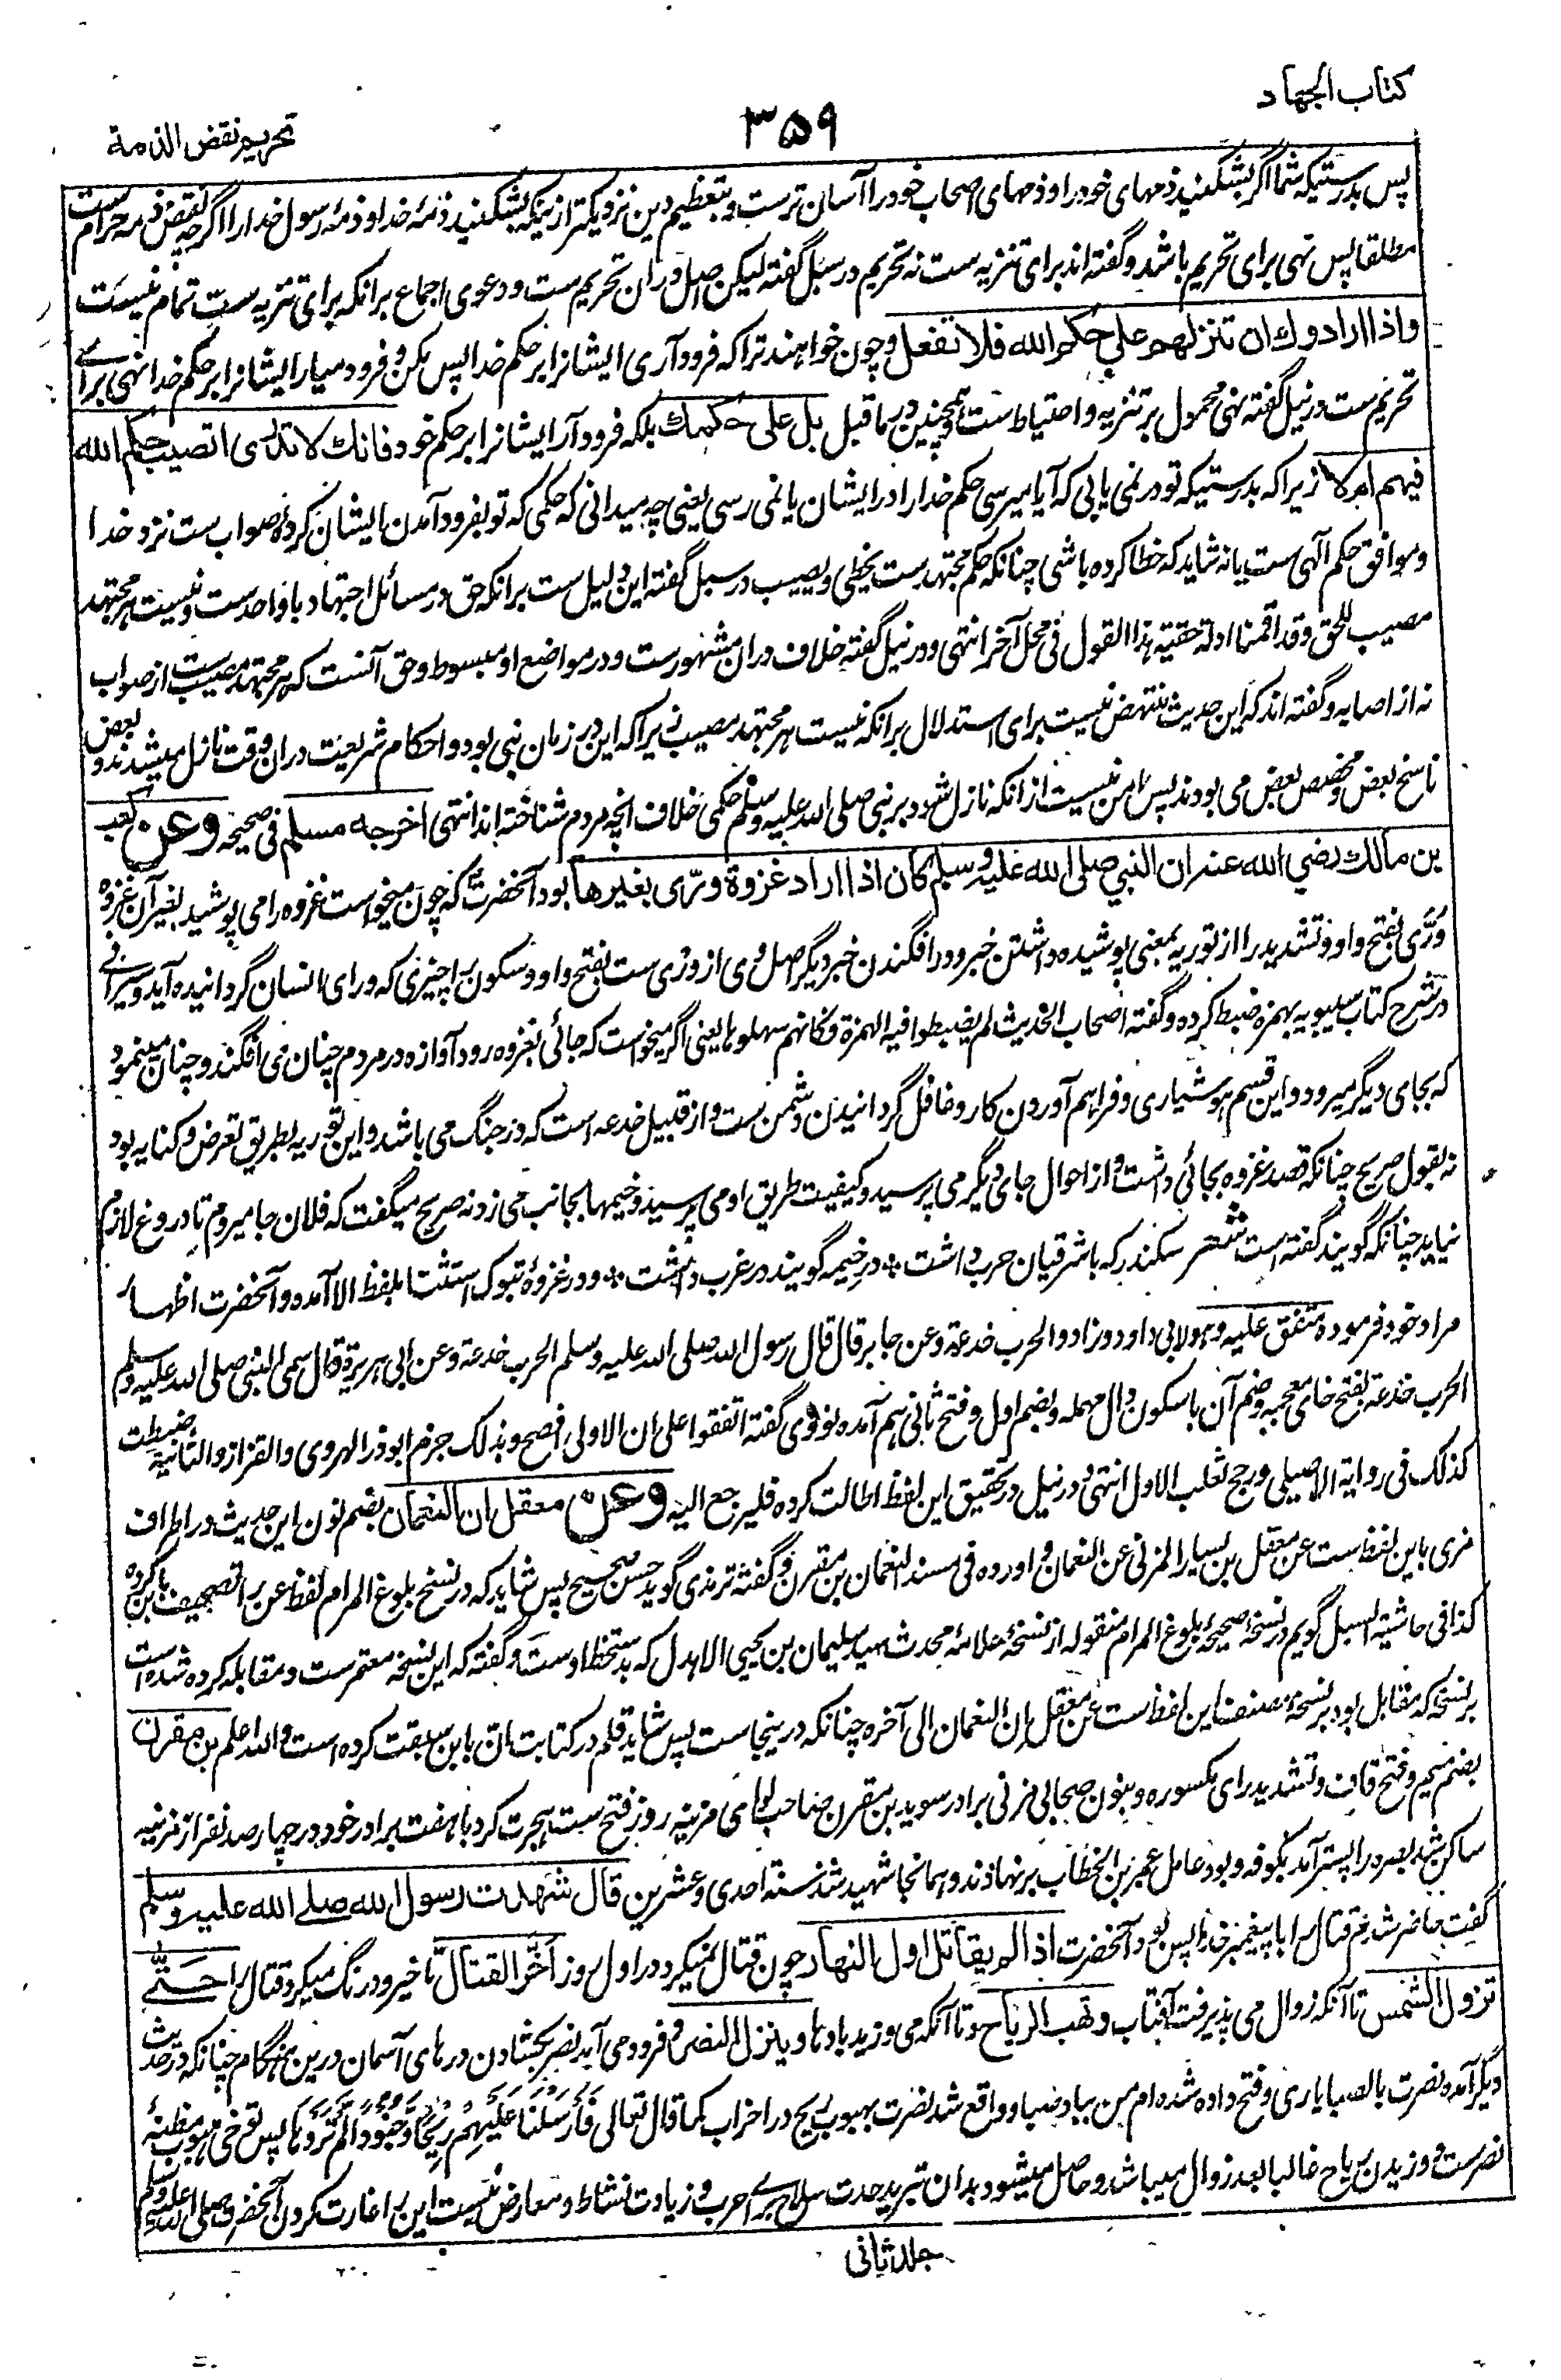 کتاب الجهاد
۳۵۹
تحریم نقض الذمة
پس بدرستیکه شما اگر بشکنید ذمهای خود را و ذمهای اصحاب خود را آسان ترست و بتعظیم دین نزدیکتر از ینکه بشکنید ذمۀ خدا و ذمۀ رسول خدا را اگرچه نقض ذمه حرام ست
مطلقا پس نهی برای تحریم باشد و گفته اند برای تنزیه ست نه تحریم در سبل گفته لیکن اصل دران تحریم ست و دعوی اجماع برانکه برای تنزیه ست تمام نیست
واذا ارادوك ان تنزلهم علی حکم الله فلا تفعل و چون خواهند ترا که فرود آری ایشانرا بر حکم خدا پس مکن و فرود میار ایشانرا بر حکم خدا نهی برای
تحریم ست در نیل گفته نهی محمول بر تنزیه و احتیاط ست و همچنین در ما قبل بل علی حکمك بلکه فرود آر ایشانرا بر حکم خود فانك لا تدری اتصیب حکم الله
فیهم ام لا زیرا که بدرستیکه تو در نمی یابی که آیا میرسی حکم خدا را در ایشان یا نمی رسی یعنی چه میدانی که حکمی که تو بفرود آمدن ایشان کردۀ صواب ست نزد خدا
و موافق حکم آلهی ست یا نه شاید که خطا کرده باشی چنانکه حکم مجتهد ست یخطی و یصیب در سبل گفته این دلیل ست برانکه حق در مسائل اجتهاد با واحد ست و نیست هر مجتهد
مصیب للحق وقد اقمنا ادلة حقیة هذا القول فی محل آخر انتهی و در نیل گفته خلاف دران مشهور ست و در مواضع او مبسوط و حق آنست که هر مجتهد مصیب ست از صواب
نه از اصابه و گفته اند که این حدیث منتهض نیست برای استدلال برانکه نیست هر مجتهد مصیب زیرا که این در زمان نبی بود و احکام شریعت دران وقت نازل میشدند و بعض
ناسخ بعض و مخصص بعض می بودند پس امن نیست ازانکه نازل شود بر نبی صلی الله علیه وسلم حکمی خلاف انچه مردم شناخته اند انتهی اخرجه مسلم فی صحیحه وعن کعب
بن مالك رضي الله عنه ان النبي صلی الله علیه وسلم کان اذا اراد غزوة ورّی بغیرها بود آنحضرت که چون میخواست غزوه را می پوشید بغیر آن غزوه
ورّی بفتح واو و تشدید را از توریه بمعنی پوشیده داشتن خبر و در افگندن خبر دیگر اصل وی از وری ست بفتح واو و سکون را چیزی که ورای انسان گردانیده آید و سیرافی
در شرح کتاب سیبویه بهمزه ضبط کرده و گفته اصحاب الحدیث لم یضبطوا فیه الهمزة وکانهم سهلوها یعنی اگر میخواست که جائی بغزوه رود آوازه در مردم چنان می افگند و چنان مینمود
که بجای دیگر میرود و این قسم هوشیاری و فراهم آوردن کار و غافل گردانیدن دشمن ست و از قبیل خدعه است که در جنگ می باشد و این توریه بطریق تعرض و کنایه بود
نه بقول صریح چنانکه قصد غزوه بجائی داشت و از احوال جای دیگر می پرسید و کیفیت طریق او می پرسید و خیمها بجانب می زد نه صریح میگفت که فلان جا میروم تا دروغ لازم
نیاید چنانکه گویند گفته است شعر سکندر که با شرقیان حرب داشت ؞ در خیمه گویند در غرب داشت ؞ و در غزوۀ تبوک استثنا بلفظ الا آمده و آنحضرت اظهار
مراد خود فرموده متفق علیه و هو لابی داود و زاد و الحرب خدعة وعن جابر قال قال رسول الله صلی الله علیه وسلم الحرب خدعة وعن ابی هریرة قال سمی النبی صلی الله علیه وسلم
الحرب خدعة بفتح خای معجمه و ضم آن با سکون دال مهمله و بضم اول و فتح ثانی هم آمده نووی گفته اتفقوا علی ان الاولی افصح وبذلک جزم ابوذر الهروی والقزاز والثانیة ضبطت
کذلک فی روایة الاصیلی ورجح ثعلب الاول انتهی و در نیل در تحقیق این لفظ اطالت کرده فلیرجع الیه وعن معقل ان النعمان بضم نون این حدیث در اطراف
مزی باین لفظ ست عن معقل بن یسار المزنی عن النعمان و اورده فی مسند النعمان بن مقرن و گفته ترمذی گوید حسن صحیح پس شاید که در نسخ بلوغ المرام لفظ عن را تصحیف بابن کرده
کذا فی حاشیة السبل گویم در نسخۀ صحیحۀ بلوغ المرام منقوله از نسخۀ علامۀ محدث سید سلیمان بن یحیی الاهدل که بدستخط اوست و گفته که این نسخه معتمرست و مقابله کرده شده است
بر نسخه که مقابل بود بر نسخۀ مصنف این لفظ ست عن معقل ان النعمان الی آخره چنانکه درینجاست پس شاید قلم در کتابت ان با بن سبقت کرده است والله اعلم بن مقرن
بضم میم و فتح قاف و تشدید رای مکسوره و بنون صحابی مزنی برادر سوید بن مقرن صاحب لوای مزینه روز فتح ست هجرت کرد با هفت برادر خود در چهار صد نفر از مزینه
ساکن شد بصره را پستر آمد بکوفه و بود عامل عمر بن الخطاب بر نهاوند و همانجا شهید شد سنة احدی وعشرین قال شهدت رسول الله صلے الله علیه وسلم
گفت حاضر شدم قتال را با پیغمبر خدا پس بود آنحضرت اذا لم یقاتل اول النهار چون قتال نمیکرد در اول روز أخّر القتال تاخیر و درنگ میکرد قتال را حتّٰے
تزول الشمس تا آنکه زوال می پذیرفت آفتاب وتهب الریاح و تا آنکه می وزید بادها وینزل النصر و فرود می آید نصر بکشادن درهای آسمان درین هنگام چنانکه در حدیث
دیگر آمده نصرت بالصبا یاری و فتح داده شده ام من بباد صبا و واقع شد نصرت بهبوب ریح در احزاب کما قال تعالی فَأَرْسَلْنَا عَلَيْهِمْ رِيحًا وَجُنُودًا لَمْ تَرَوْهَا پس توخی هبوب مظنۀ
نصرست و وزیدن ریاح غالبا بعد زوال میباشد و حاصل میشود بدان تبرید حدت سلاح برای حرب و زیادت نشاط و معارض نیست این را اغارت کردن آنحضرت صلی الله علیه وسلم
جلد ثانی